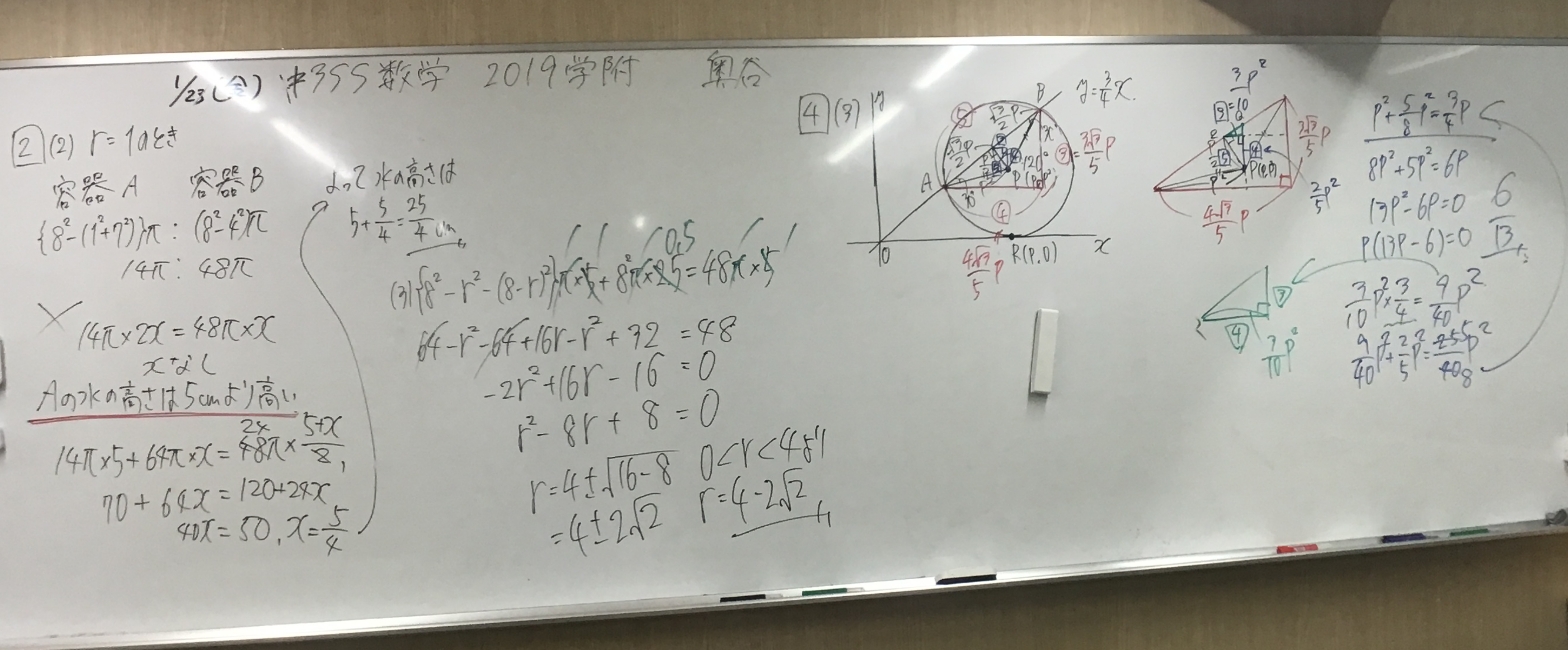 1/23(金) 中3SS数学 2019学附 奥谷
2 (2) r=1のとき
容器A 容器B
{8²-(1²+7²)}π : (8²-4²)π
14π : 48π
14π×2x=48π×x
xなし
Aの水の高さは5cmより高い
14π×5+64π×x=48π×5+x/8
24
70+64x=120+24x
40x=50, x=5/4
よって水の高さは
5+5/4=25/4 cm
(3){8²-r²-(8-r)²}π×5+8²π×2.5=48π×5
0.5
64-r²-64+16r-r²+32=48
-2r²+16r-16=0
r²-8r+8=0
r=4±√16-8 0<r<4より
=4±2√2 r=4-2√2
4 (3)
y
B
y=3/4x
A
3√3/5p
4
4√3/5p
O
R(p,0)
x
3p²
3√3/5p
P(p,p²)
2/5p²
4√3/5p
3
4
3/10p²
p²+5/8p²=3/4p
8p²+5p²=6p
13p²-6p=0
p(13p-6)=0
6/13
3/10p²×3/4=9/40p²
9/40p²+2/5p²=25/40p²
5
8